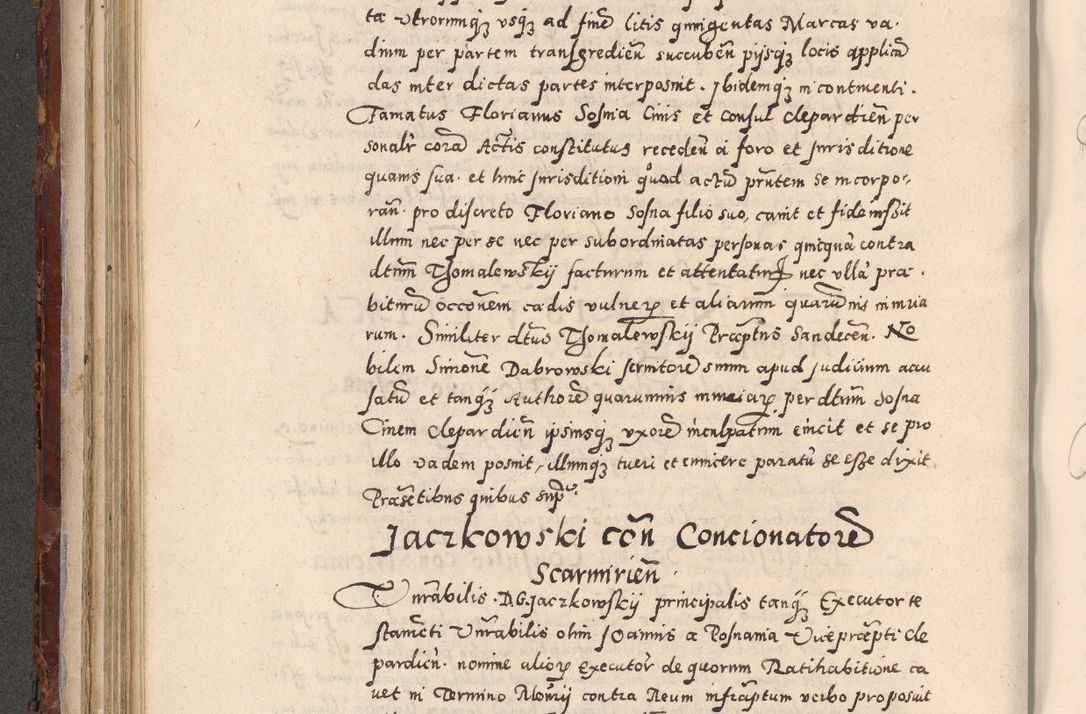 ta utrorumq̃ʒ usq̃ʒ ad finẽ litis quingentas Marcas va-
dium per partem transgredieñ succubeñ pijsq̃ʒ locis applicã
das inter dictas partes interposuit. Ibidemq̃ʒ in continenti.
Famatus Florianus Sosnia Ciuis et Consul Clepardieñ per
sonalr̃ corã Actis constitutus recedeñ a foro et Jurisditione
quauis sua. et huic Jurisditioni quoad actũ pñtem se incorpo-
rañ. pro discreto Floriano Sosna filio suo, cauit et fideiussit
illum nec per se nec per subordinatas personas quicquã contra
dtũm Thomalewskij facturum et attentaturũ nec ullã præ-
biturũ occõnem cædis vulnerũ et aliarum quarũuis iniuria
rum. Similiter dtus Thomalewskij Præptus Sandeceñ. No
bilem Simonẽ Dabrowski seruitorẽ suum apud Judicium accu
satũ et tanq̃ʒ Authorẽ quarumuis iniuriarũ per dtum Sosna
Ciuem Clepardieñ ipsiusq̃ʒ uxorẽ inculpatum eiicit et se pro
illo vadem posuit, illumq̃ʒ tueri et euincere paratũ se esse dixit
Præsẽtibus quibus sup̃.
Jaczkowski coñ Concionatorẽ
Scarmirieñ.
Vñrabilis D. G. Jaczkowskij principalis tanq̃ʒ Executor te
stamẽti Vñrabilis olim Joannis a Posnania Vicepræpti Cle
pardieñ. nomine aliorũ executorũ de quorum Ratihabitione ca
uet in Termino Alorũ contra Reum infraptum verbo proposuit